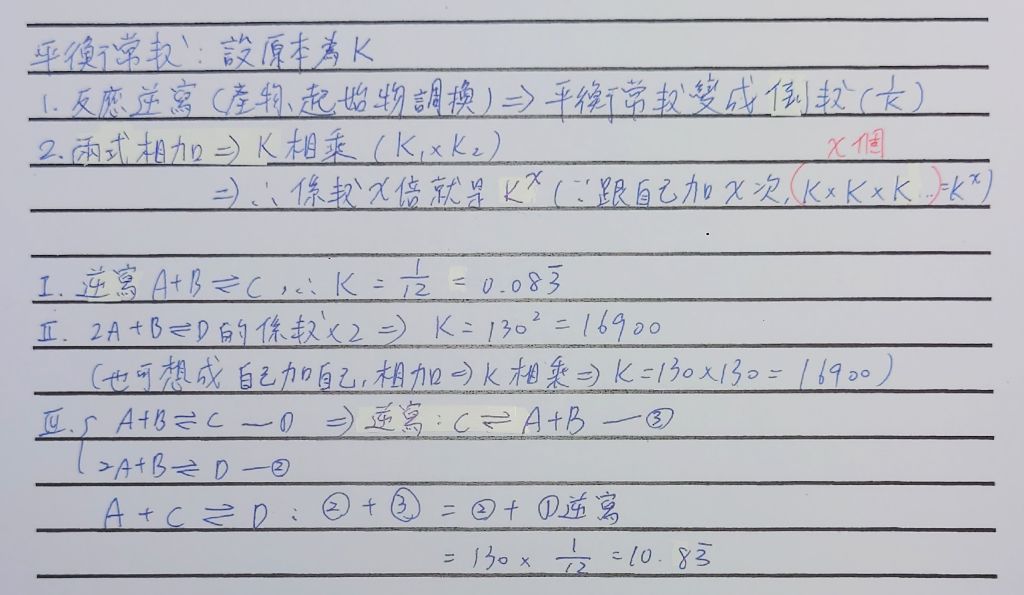 平衡常數：設原本為K
1. 反應逆寫(產物、起始物調換) ⇒ 平衡常數變成倒數(1/K)
2. 兩式相加 ⇒ K相乘 (K₁×K₂)
x個
⇒ ∴ 係數x倍就是 Kˣ (∵跟自己加x次, (K×K×K...)=Kˣ)
I. 逆寫 A+B⇌C, ∴ K = 1/12 = 0.083̅
II. 2A+B⇌D的係數×2 ⇒ K=130² = 16900
(也可想成自己加自己, 相加⇒K相乘⇒ K=130×130=16900)
III. { A+B⇌C —① ⇒ 逆寫: C⇌A+B —③
2A+B⇌D —②
A+C⇌D : ②+③ = ②+①逆寫
= 130 × 1/12 = 10.83̅